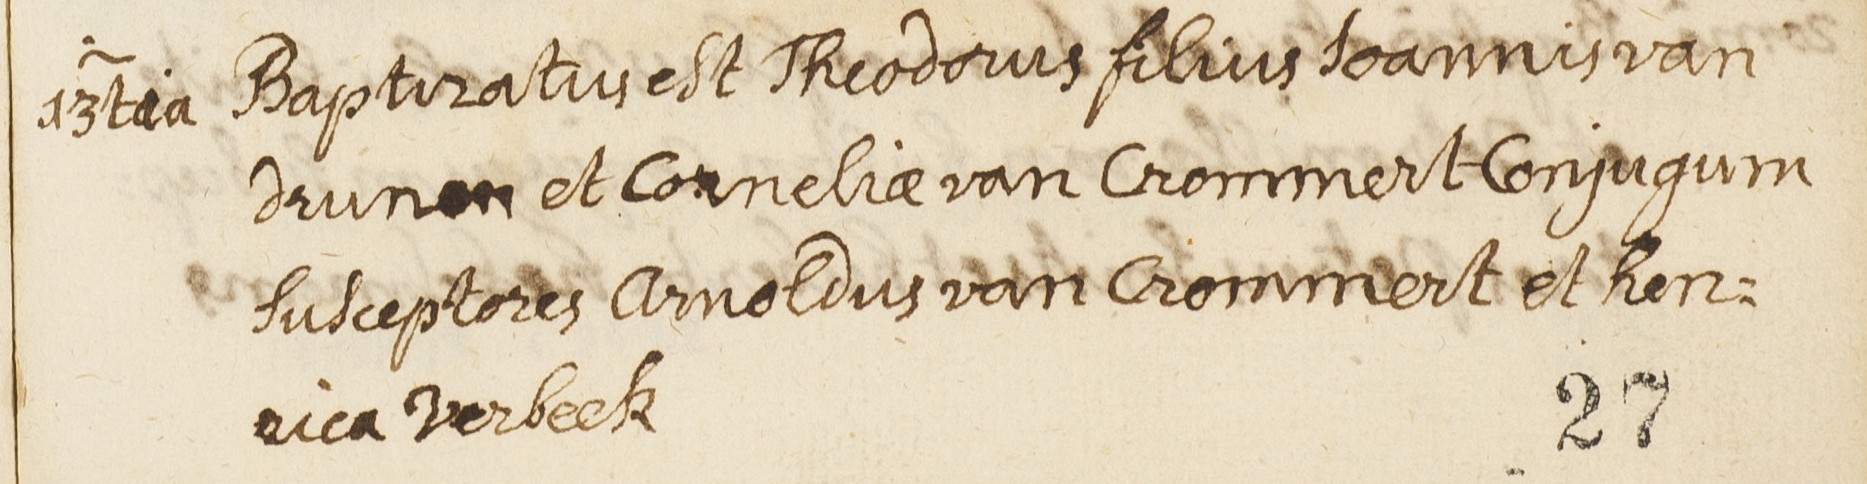 13tia Baptizatus est Theodorus filius Joannis van
drunen et Corneliæ van Crommert Conjugum
susceptores Arnoldus van Crommert et hen:
rica Verbeek
27